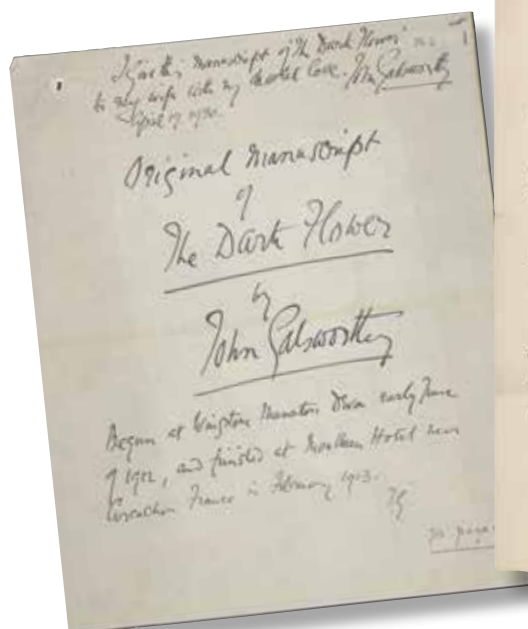 I give this manuscript of 'The Dark Flower'
to my wife with my dearest love. John Galsworthy
April 17 1930.
Original Manuscript
of
The Dark Flower
by
John Galsworthy
Begun at Wingstone Manaton Devon early June
of 1912, and finished at Moulleau Hotel near
Arcachon France in February 1913.
JG